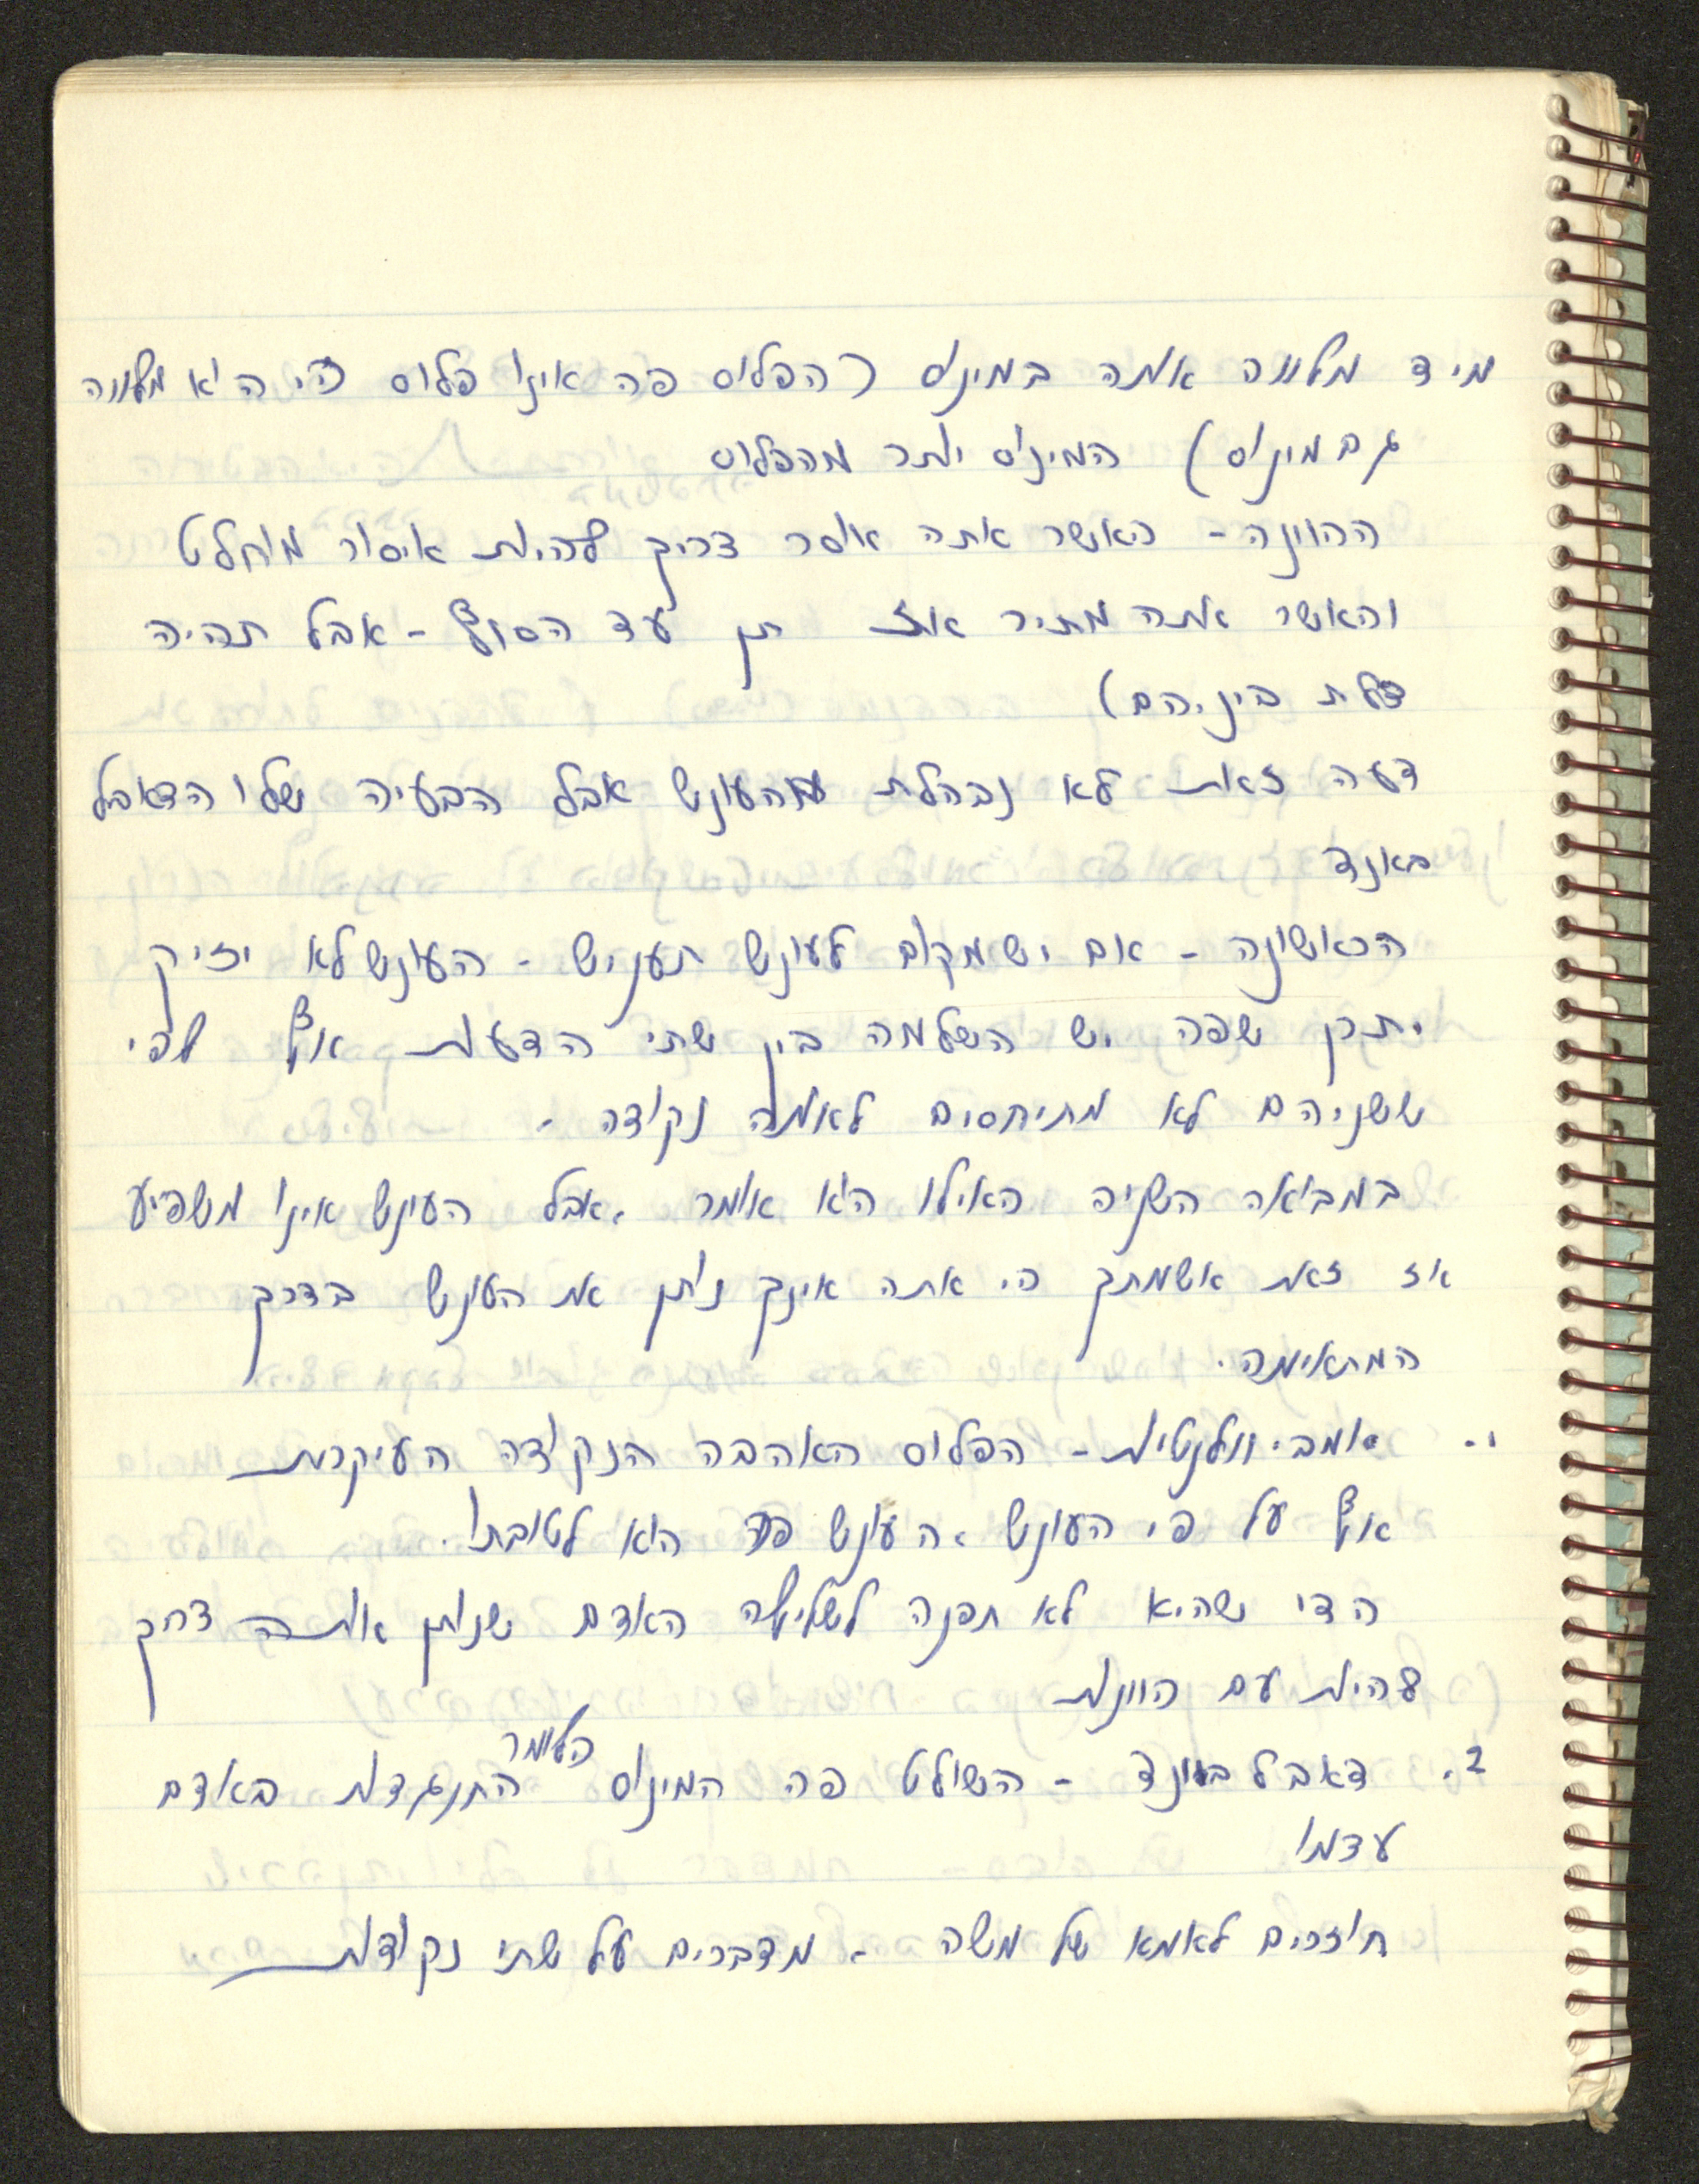 מיד מלווה אותה במינוס (הפלוס פה אינו פלוס כי הוא מלווה
גם מינוס) המינוס יותר מהפלוס
הכוונה - כאשר אתה אוסר צריך להיות איסור מוחלט
וכאשר אתה מתיר אז תן עד הסוף - אבל תהיה
דלת ביניהם)
דעה זאת לא נבהלת מהעונש אבל הבעיה שלו הדאבל
באונד
הראשונה - אם יש מקום לעונש תעניש - העונש לא יזיק
יתכן שפה יש השלמה בין שתי הדעות אף לפי
ששניהם לא מתיחסים לאותה נקודה -
במבואה השניה כאילו הוא אומר, אבל העונש אינו משפיע
אז זאת אשמתך כי אתה אינך נותן את העונש בדרך
המתאימה.
1. אמביוולנטיות - הפלוס האהבה הנקודה העיקרית
אף על פי העונש, העונש פה הוא לטובתו.
כדי שהיא לא תפנה לשלילה האדם שנותן אותה צריך
להיות עם כוונות
2. דאבל באונד - השולט פה המינוס כלומר התנגדות באדם
עצמו
חוזרים לאמא של משה - מדברים על שתי נקודות